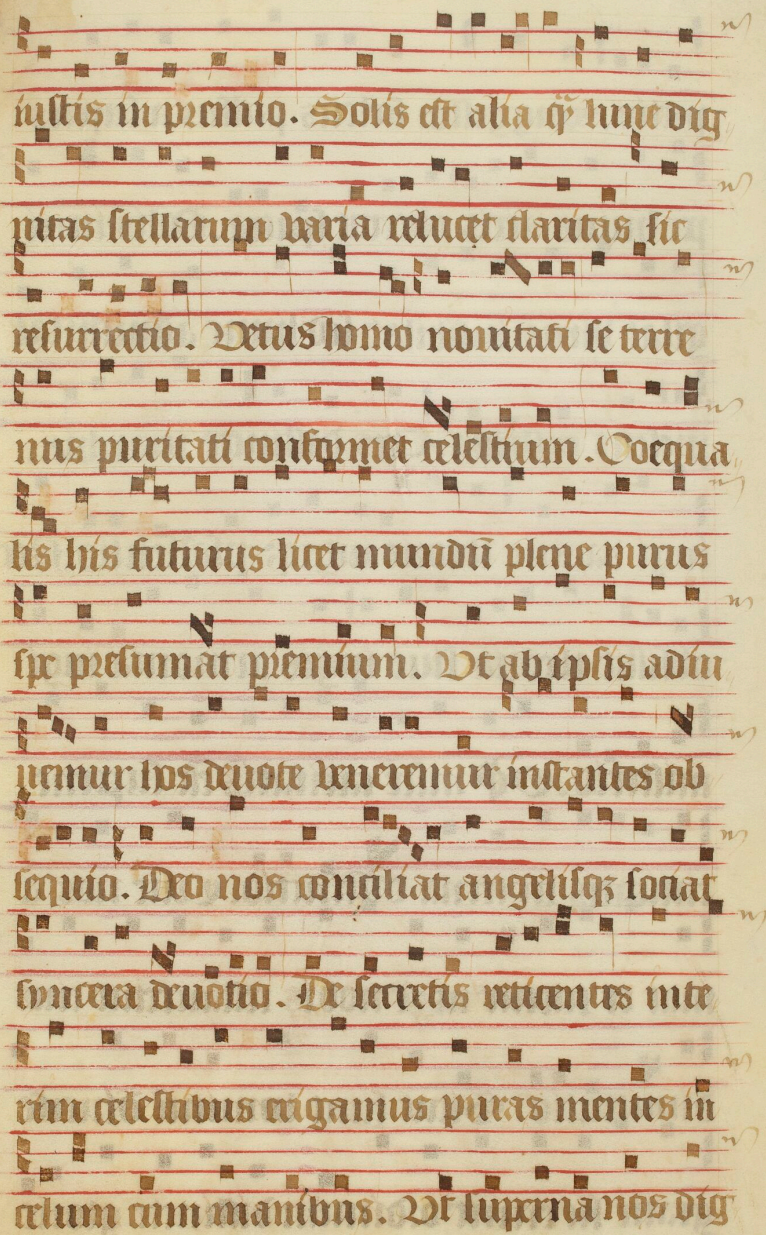 iustis in premio. Solis est alia q̄ȝ lune dig
nitas stellarum varia relucet claritas sic
resurrectio. Vetus homo nouitati se terre
nus puritati conformet celestium. Coequa
lis his futurus licet mundū plene purus
spe presumat premium. Vt ab ipsis adiu
uemur hos deuote veneremur instantes ob
sequio. Deo nos conciliat angelisqȝ sociat
syncera deuotio. De secretis reticentes inte
rim celestibus erigamus puras mentes in
celum cum manibus. Vt superna nos dig